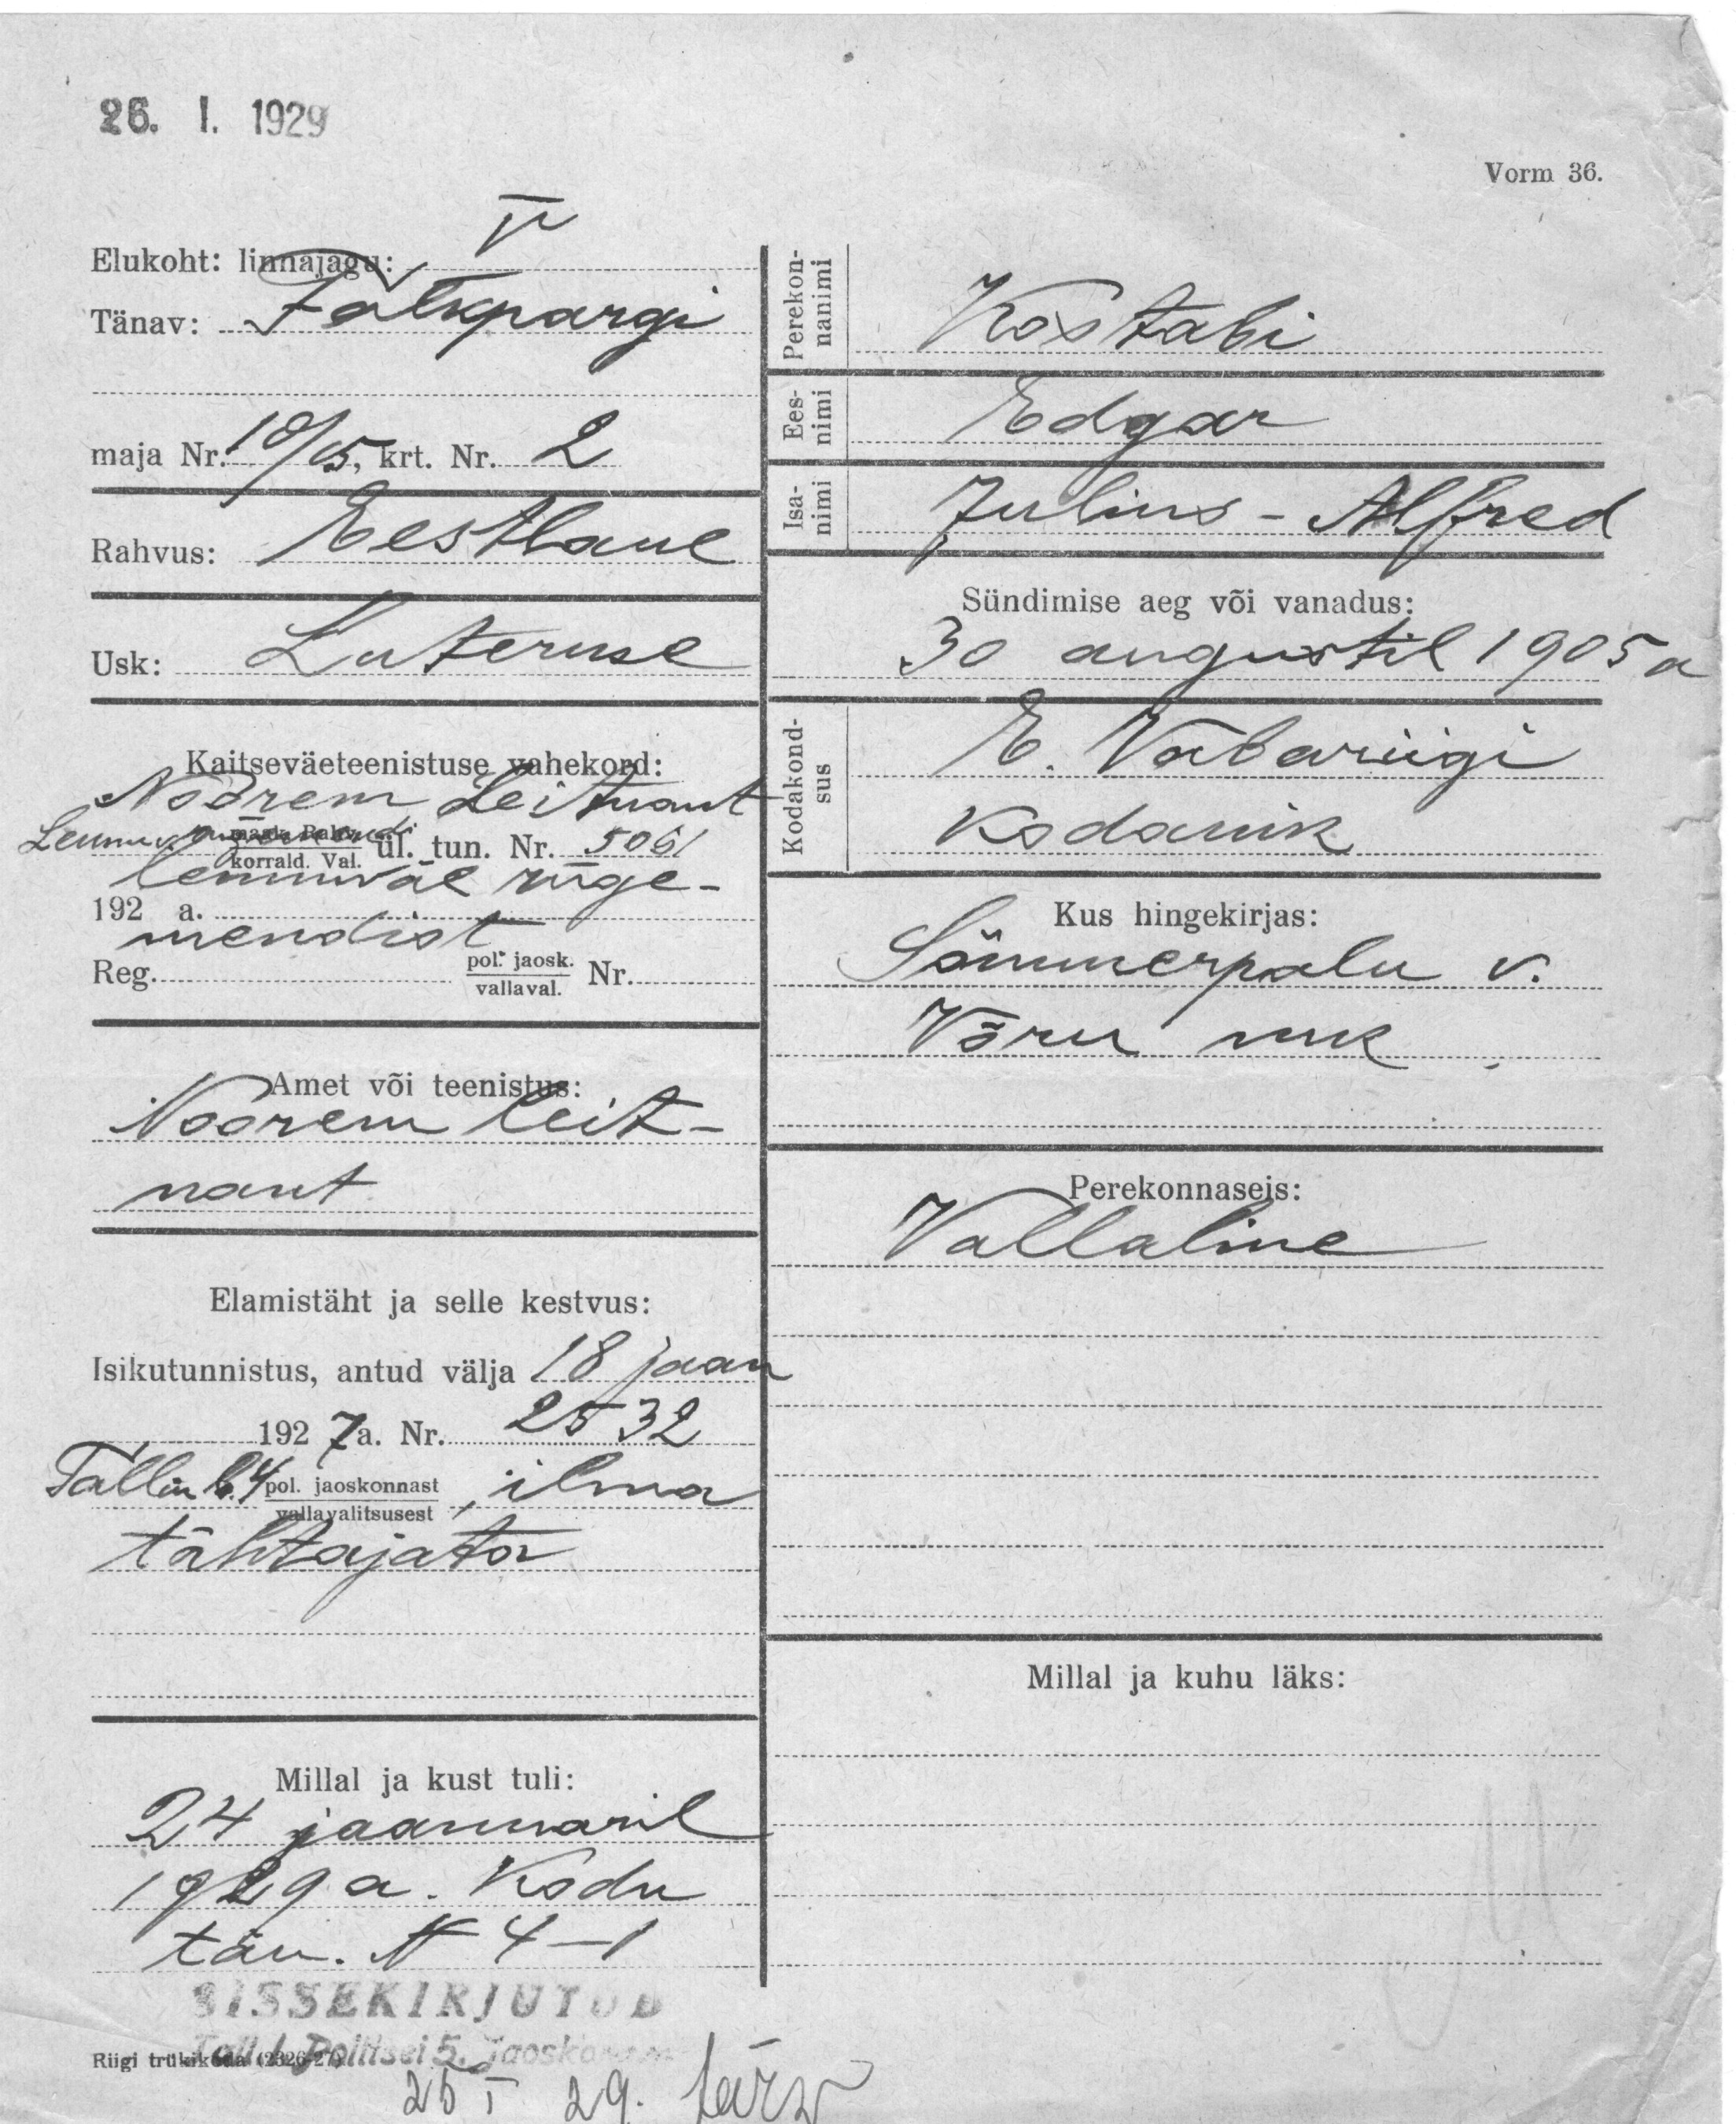 26. I. 1929
Vorm 36.
V
Elukoht: linnajagu:
Tänav: Falkpargi
maja Nr. 10/15, krt. Nr. 2
Rahvus: Eestlane
Usk: Luteruse
Kaitseväeteenistuse vahekord:
Noorem Leitnant
Lennuv. rügemendi
maak. Rahv.
korrald. Val. ül. tun. Nr. 5061
lennuväe rüge-
192 a.
mendist
Reg. pol. jaosk.
vallaval. Nr.
Amet või teenistus:
Noorem leit-
nant
Elamistäht ja selle kestvus:
Isikutunnistus, antud välja 18 jaan
192 7 a. Nr. 2532
Tallin l. 4 pol. jaoskonnast
vallavalitsusest , ilma
tähtajata
Millal ja kust tuli:
24 jaanuaril
1929 a. Kodu
tän. N 4-1
SISSEKIRJUTUD
Tall. l. Politsei 5. Jaoskonnas
Riigi trükikoda (2326-27)
25 I 29. Järw
Perekon-
nanimi
Kostabi
Ees-
nimi
Edgar
Isa-
nimi
Julius-Alfred
Sündimise aeg või vanadus:
30 augustil 1905 a
Kodakond-
sus
E. Vabariigi
Kodanik
Kus hingekirjas:
Sõmmerpalu v.
Võru mk
Perekonnaseis:
Vallaline
Millal ja kuhu läks: